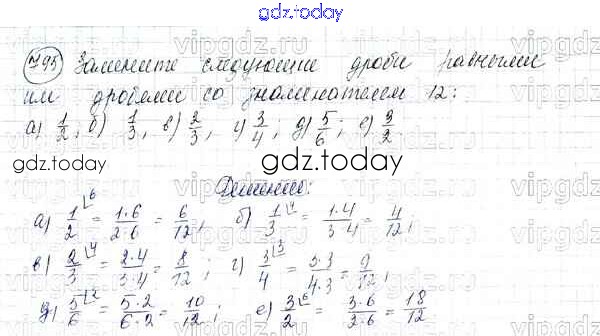 gdz.today
№95 Замените следующие дроби равными
им дробями со знаменателем 12:
а) 1/2; б) 1/3, в) 2/3, г) 3/4; д) 5/6; е) 3/2.
gdz.today
gdz.today
Решение:
а) 1/2 ⌊6 = 1·6/2·6 = 6/12, б) 1/3 ⌊4 = 1·4/3·4 = 4/12,
в) 2/3 ⌊4 = 2·4/3·4 = 8/12; г) 3/4 ⌊3 = 3·3/4·3 = 9/12,
д) 5/6 ⌊2 = 5·2/6·2 = 10/12; е) 3/2 ⌊6 = 3·6/2·6 = 18/12
gdz.today